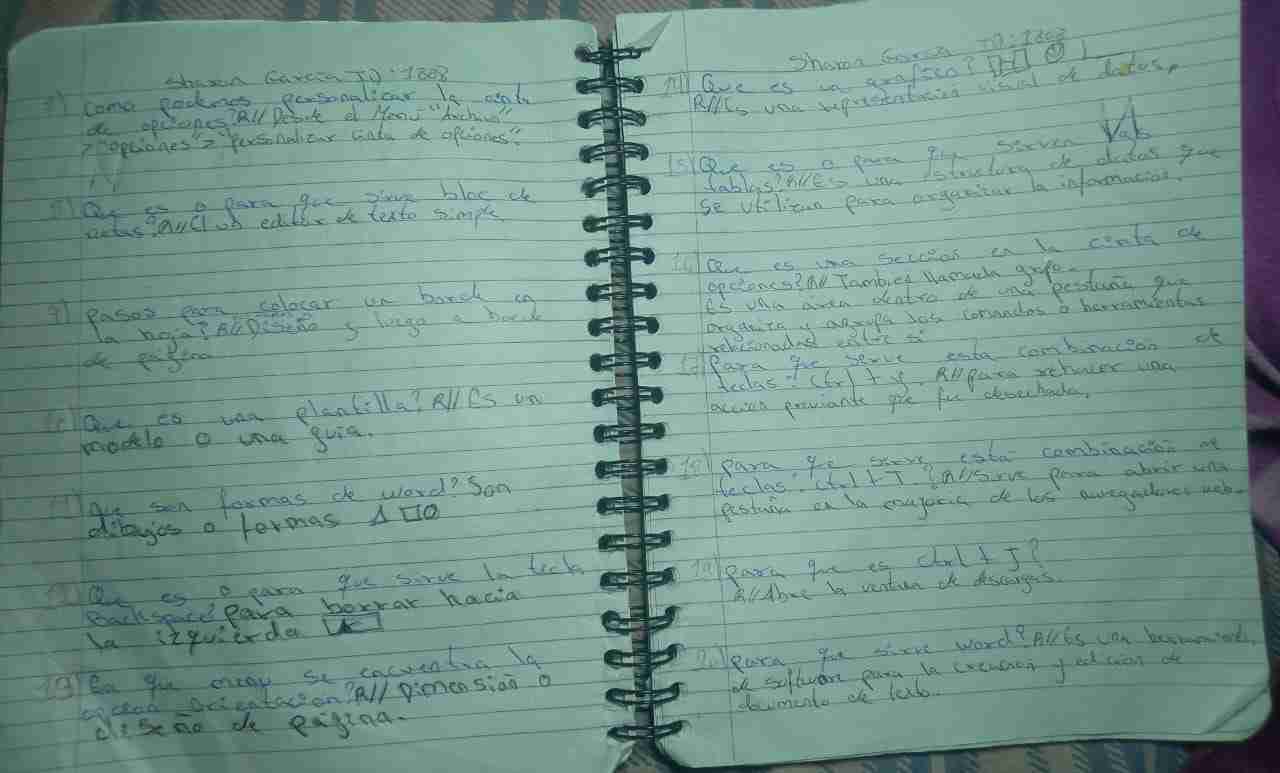 Sharon Garcia TD: 1803
7) Como podemos personalizar la cinta
de opciones? R// Desde el Menu "Archivo"
> "opciones" > "personalizar cinta de opciones".
8) Que es o para que sirve bloc de
notas? R// un editor de texto simple
9) pasos para colocar un borde en
la hoja? R// Diseño y luego a borde
de pagina
10) Que es una plantilla? R// Es un
modelo o una guia.
11) Que son formas de word? Son
dibujos o formas
12) Que es o para que sirve la tecla
Backspace? para borrar hacia
la izquierda
13) En que menu se encuentra la
opcion orientacion? R// Dimension o
diseño de pagina.
Sharon Garcia TD: 1803
14) Que es un grafico?
R// Es una representacion visual de datos.
15) Que es o para que sirven
tablas? R// Es una structura de datos que
se utilizan para organizar la informacion.
16) Que es una seccion en la cinta de
opciones? R// Tambien llamada grupo.
Es una área dentro de una pestaña que
organiza y agrupa los comandos o herramientas
relacionadas entre si
17) para que sirve esta combinacion de
teclas: Ctrl + y. R// para rehacer una
accion previante que fue desechada.
18) para que sirve esta combinacion de
teclas: Ctrl + T? R// Sirve para abrir una
pestaña en la mayoria de los navegadores web.
19) para que es ctrl + J?
R// Abre la ventana de descargas.
20) para que sirve word? R// Es una herramienta
de software para la creacion y edicion de
documento de texto.